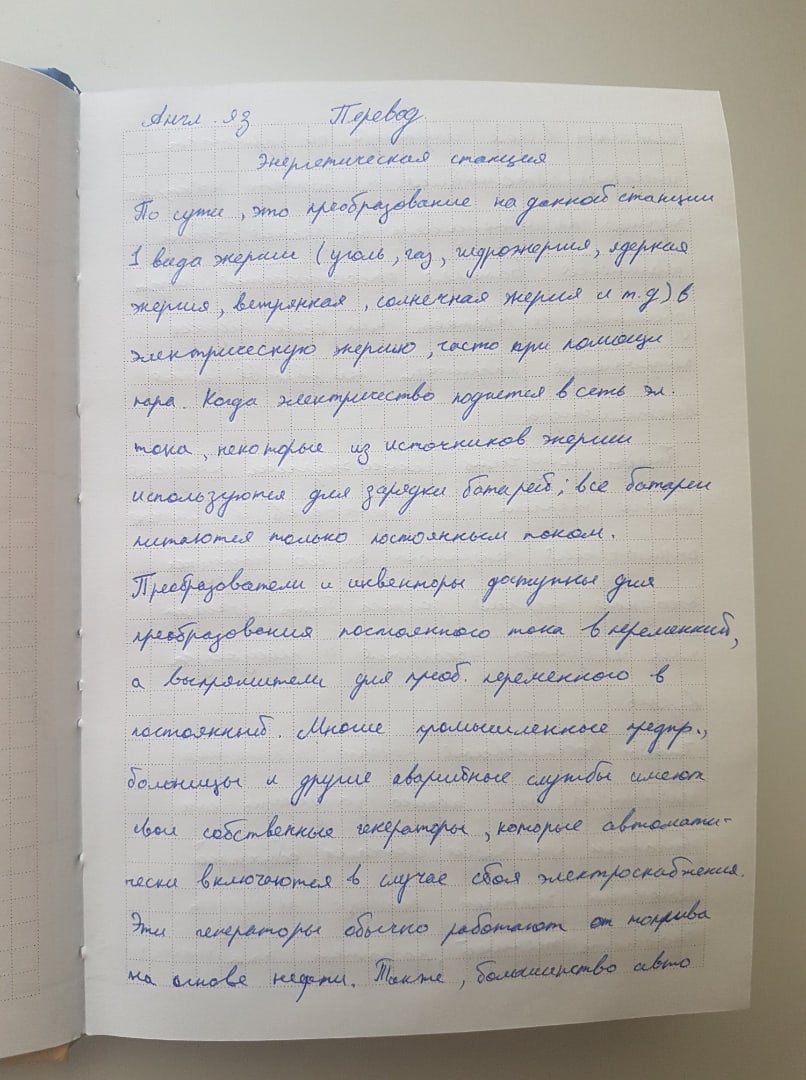 Англ. яз Перевод
Энергетическая станция
По сути, это преобразование на данной станции
1 вида энергии (уголь, газ, гидроэнергия, ядерная
энергия, ветрянная, солнечная энергия и т.д) в
электрическую энергию, часто при помощи
пара. Когда электричество подается в сеть эл.
тока, некоторые из источников энергии
используются для зарядки батарей; все батареи
питаются только постоянным током.
Преобразователи и инвенторы доступны для
преобразования постоянного тока в переменный,
а выпрямители для преоб. переменного в
постоянный. Многие промышленные предпр.,
больницы и другие аварийные службы имеют
свои собственные генераторы, которые автомати-
чески включаются в случае сбоя электроснабжения.
Эти генераторы обычно работают от топлива
на основе нефти. Также, большинство авто